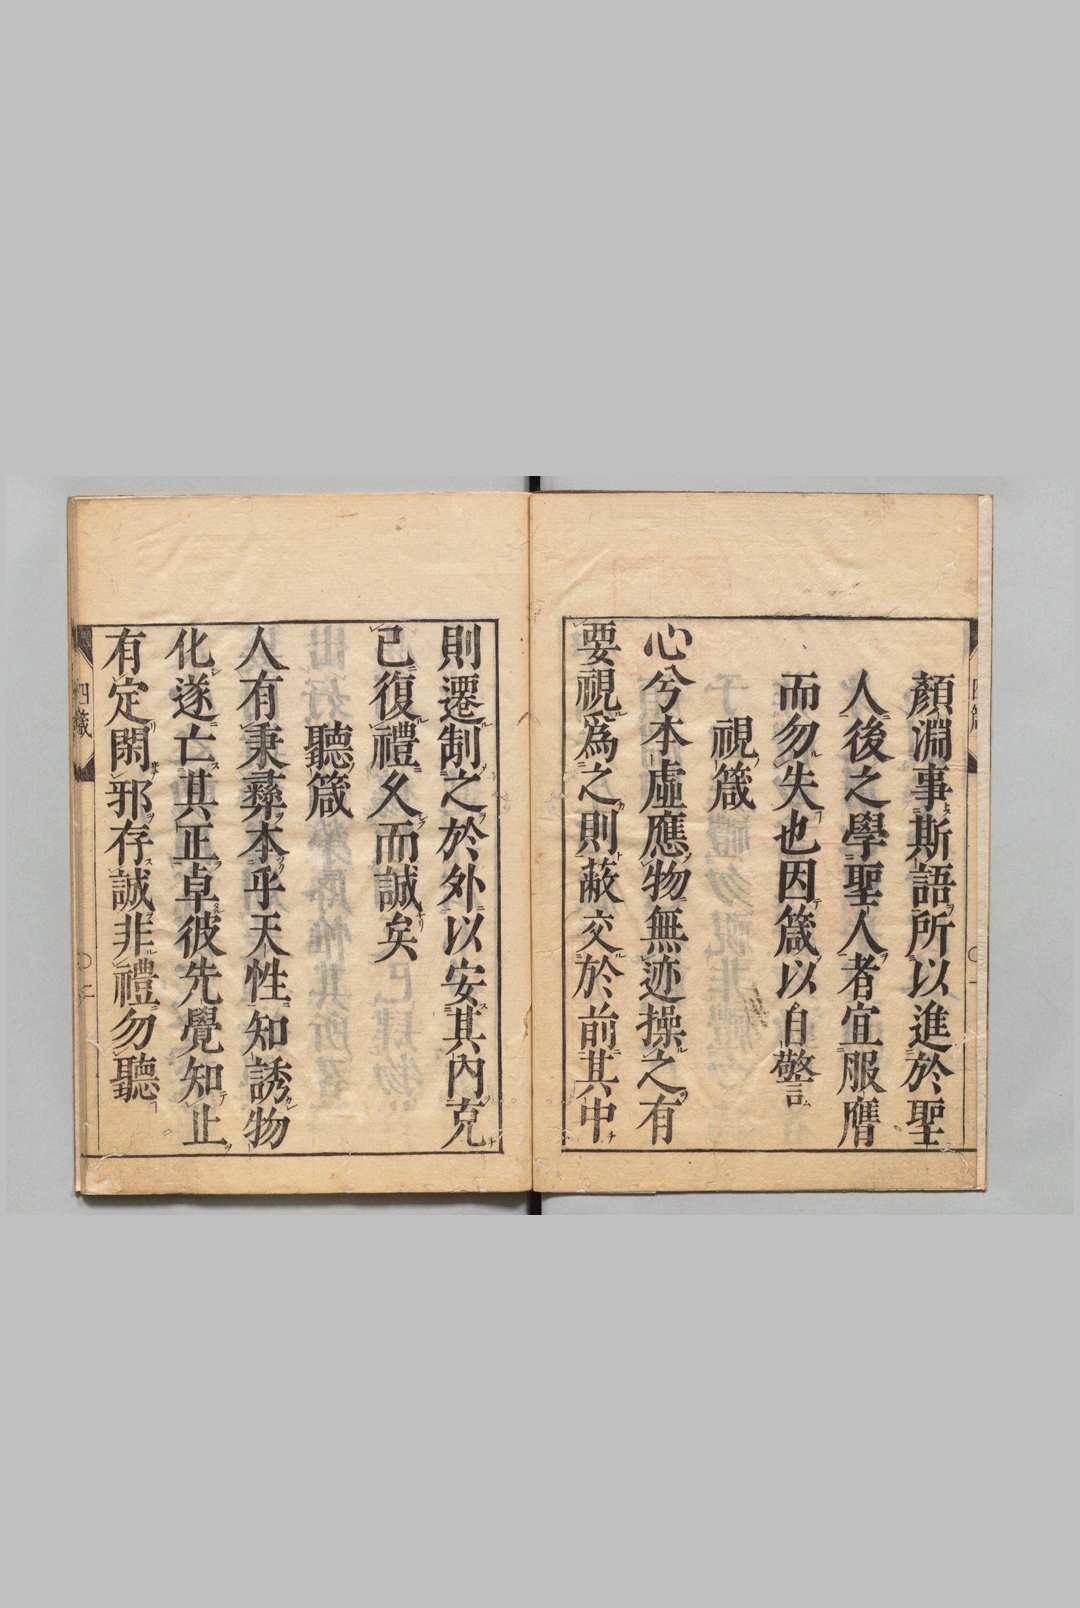 顏淵事斯語所以進於聖
人後之學聖人者宜服膺
而勿失也因箴以自警
視箴
心兮本虛應物無迹操之有
要視爲之則蔽交於前其中
則遷制之於外以安其內克
己復禮久而誠矣
聽箴
人有秉彝本乎天性知誘物
化遂亡其正卓彼先覺知止
有定閑邪存誠非禮勿聽
四箴
二